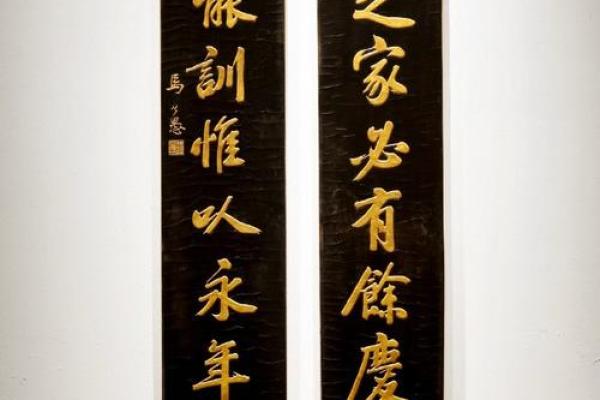 之家必有餘慶
能訓惟以永年
馬公愚